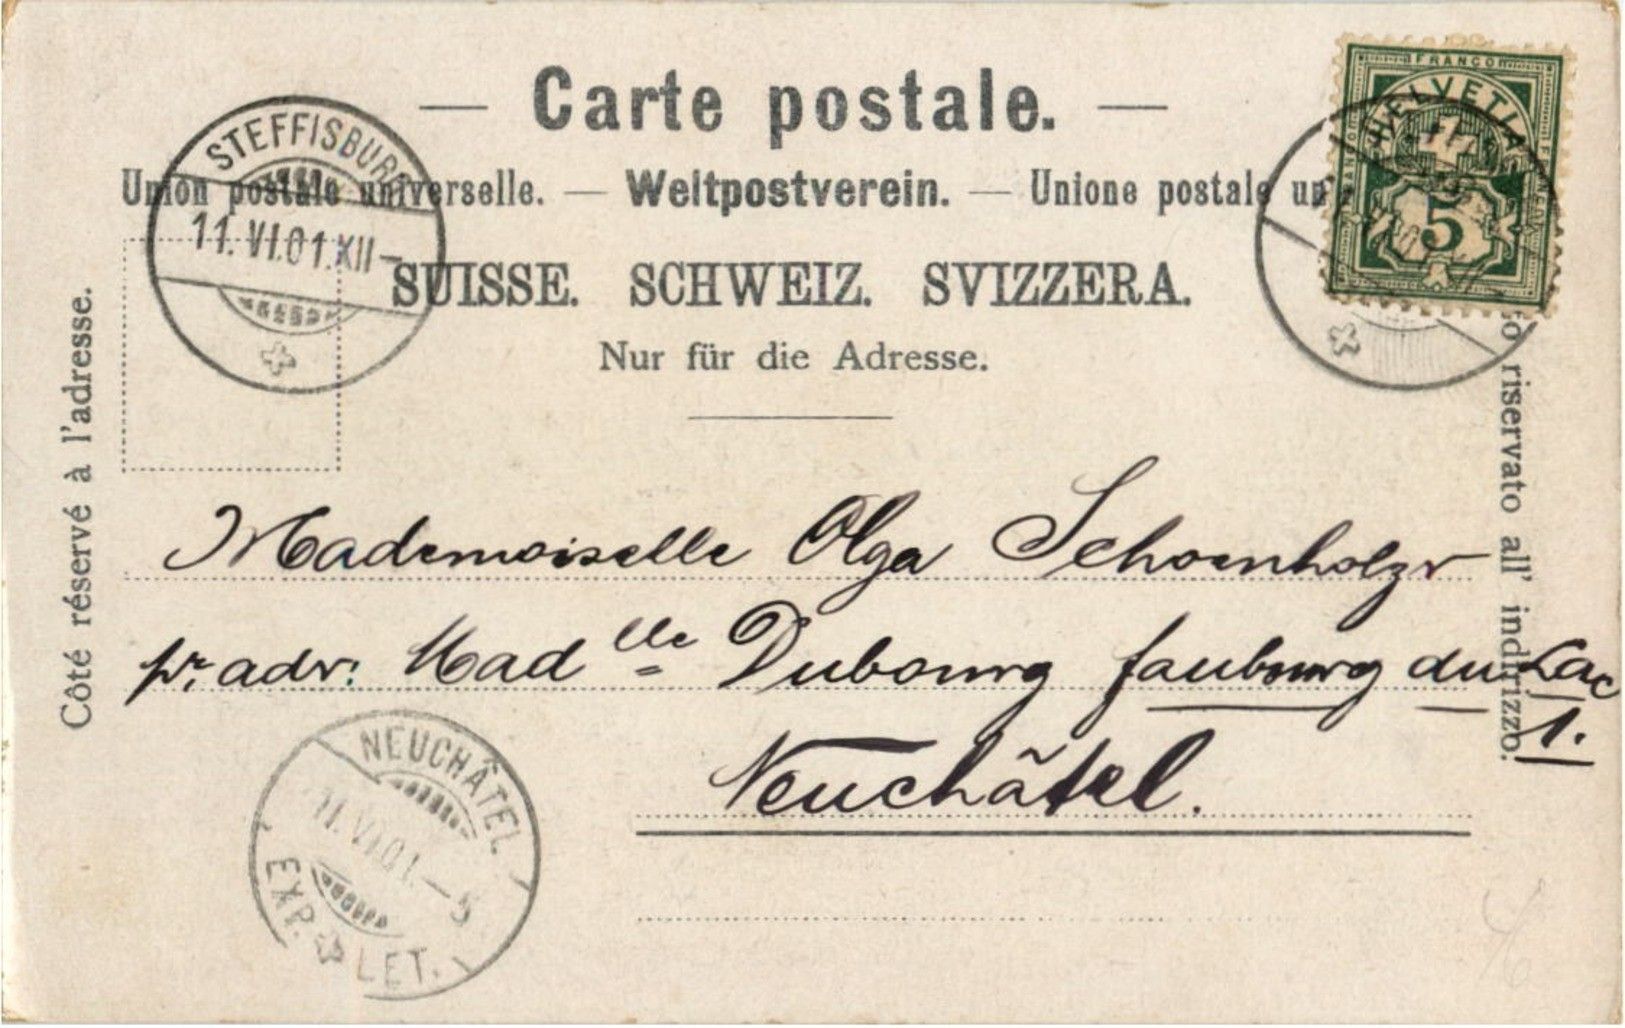 Carte postale.
Union postale universelle. — Weltpostverein. — Unione postale un
SUISSE. SCHWEIZ. SVIZZERA.
Nur für die Adresse.
Côté réservé à l'adresse.
riservato all' indirizzo.
STEFFISBURG
11. VI. 01. XII–
FRANCO
HELVETIA
5
Mademoiselle Olga Schoenholzr
pr. adr. Madlle Dubourg faubourg du Lac
1.
Neuchâtel.
NEUCHÂTEL
11. VI. 01. – 5
EXP. LET.